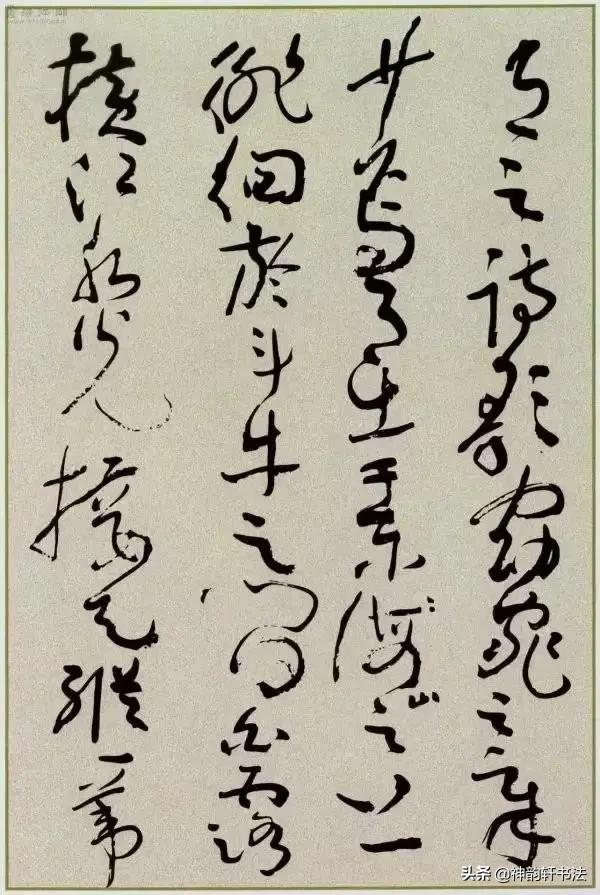 月之詩歌窈窕之章
少焉月出于東海山之上
徘徊於斗牛之間白露
橫江水光接天縱一葦
头条 @神韵轩书法